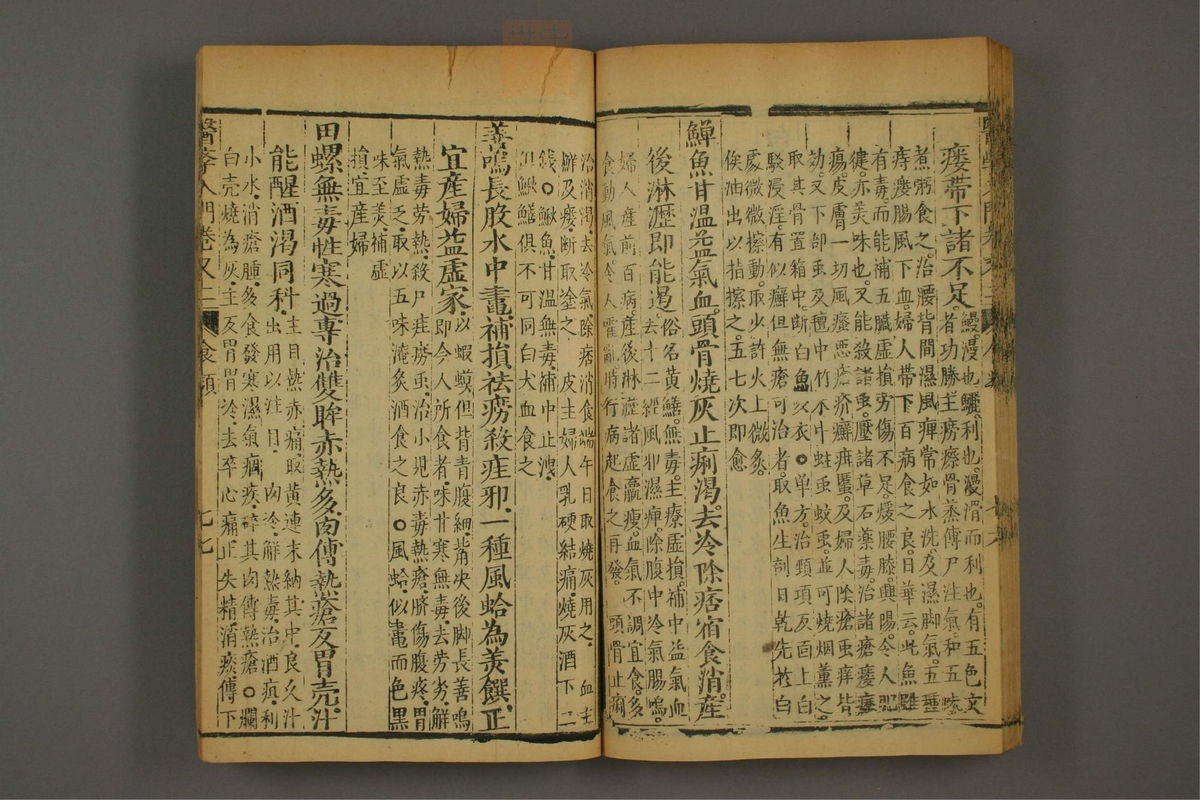 瘻帶下諸不足鰻漫也鱺利也漫滑而利也有五色文
者功勝主癆瘵骨蒸傳尸注氣和五味
煮粥食之治腰背間濕風痺常如水洗及濕脚氣五種
痔瘻腸風下血婦人帶下百病食之良日華云此魚雖
有毒而能補五臟虛損勞傷不足煖腰膝興陽令人肥
健亦美味也又能殺諸虫壓諸草石藥毒治諸瘡瘻
瘍皮膚一切風癮惡瘡疥癬疳䘌及婦人陰瘡虫痒皆
効又下部虫及氊中竹木中蛀虫蚊虫並可燒烟薰之
取其骨置箱中斷白魚父衣○單方治頸項及面上白
駁浸淫有似癬但無瘡可治者取魚生剖日乾先於白
處微微擦動取少許火上微炙
俟油出以指擦之五七次即愈
鱓魚甘温益氣血頭骨燒灰止痢渴去冷除痞宿食消産
後淋瀝即能遏俗名黃鱔無毒主療虛損補中益氣血
去十二經風邪濕痺除腹中冷氣腸鳴
婦人産前百病産後淋瀝諸虛羸瘦血氣不調宜食多
食動風氣令人霍亂時行病起食之再發 頭骨止痢
治消渴去冷氣除痞消食端午日取燒灰用之 血主
癬及瘻斷取塗之 皮主婦人乳硬結痛燒灰酒下二
錢○鰍魚甘温無毒補中止洩
但鰍鱔俱不可同白犬血食之
善鳴長股水中鼃補損祛癆殺疰邪一種風蛤為羙饌正
宜産婦益虛家以蝦蟆但背青腹細嘴尖後脚長善鳴
即今人所食者味甘寒無毒去劳劣解
熱毒劳熱殺尸疰癆虫治小児赤毒熱瘡臍傷腹疼胃
氣虛乏取以五味淹炙酒食之良○風蛤似鼃而色黑
味至羙補虛
損宜産婦
田螺無毒性寒過專治雙眸赤熱多肉傅熱瘡反胃壳汁
能醒酒渴同科主目熱赤痛取黃連末納其中良久汁
出用以注目 肉冷解熱毒治酒疸利
小水消瘡腫多食發寒濕氣痼疾碎其肉傅熱瘡○爛
白壳燒為灰主反胃胃冷去卒心痛止失精消痰傳下
醫學入門卷又二 食類 七七